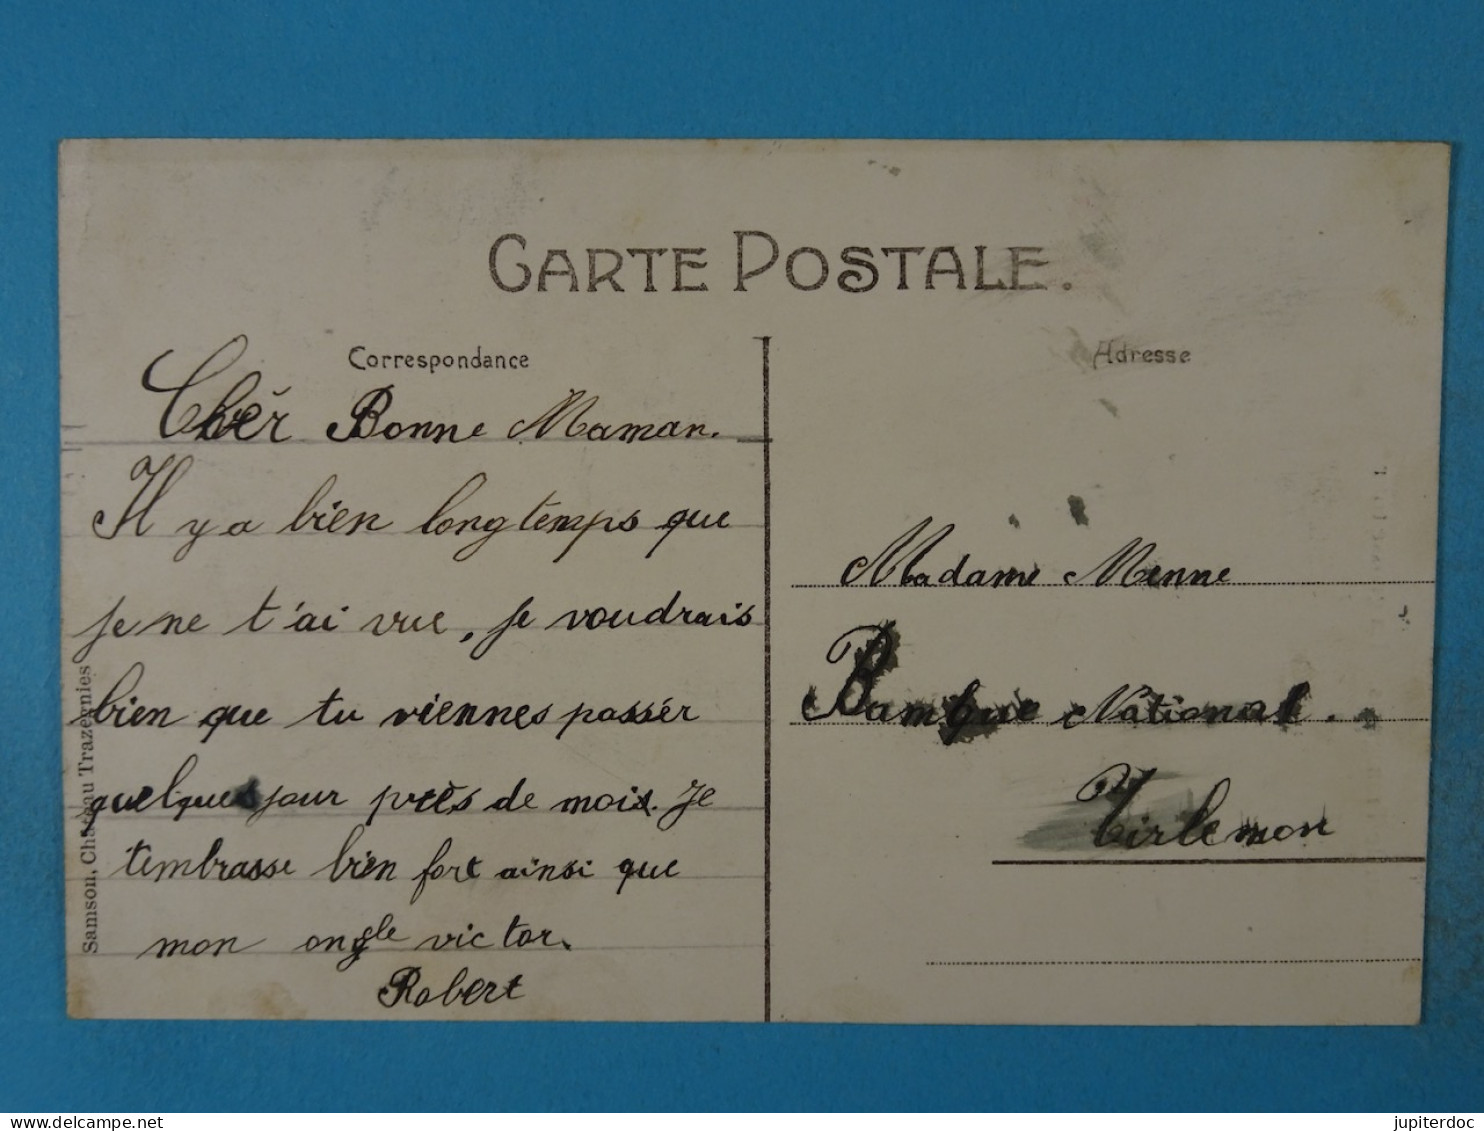 CARTE POSTALE.
Correspondance
Chèr Bonne Maman.
Il y a bien longtemps que
je ne t'ai vue, je voudrais
bien que tu viennes passér
quelques jour près de mois. Je
t'embrasse bien fort ainsi que
mon ongle victor.
Robert
Samson, Château Trazegnies
Adresse
Madame Menne
Bambque National.
Tirlemon
jupiterdoc